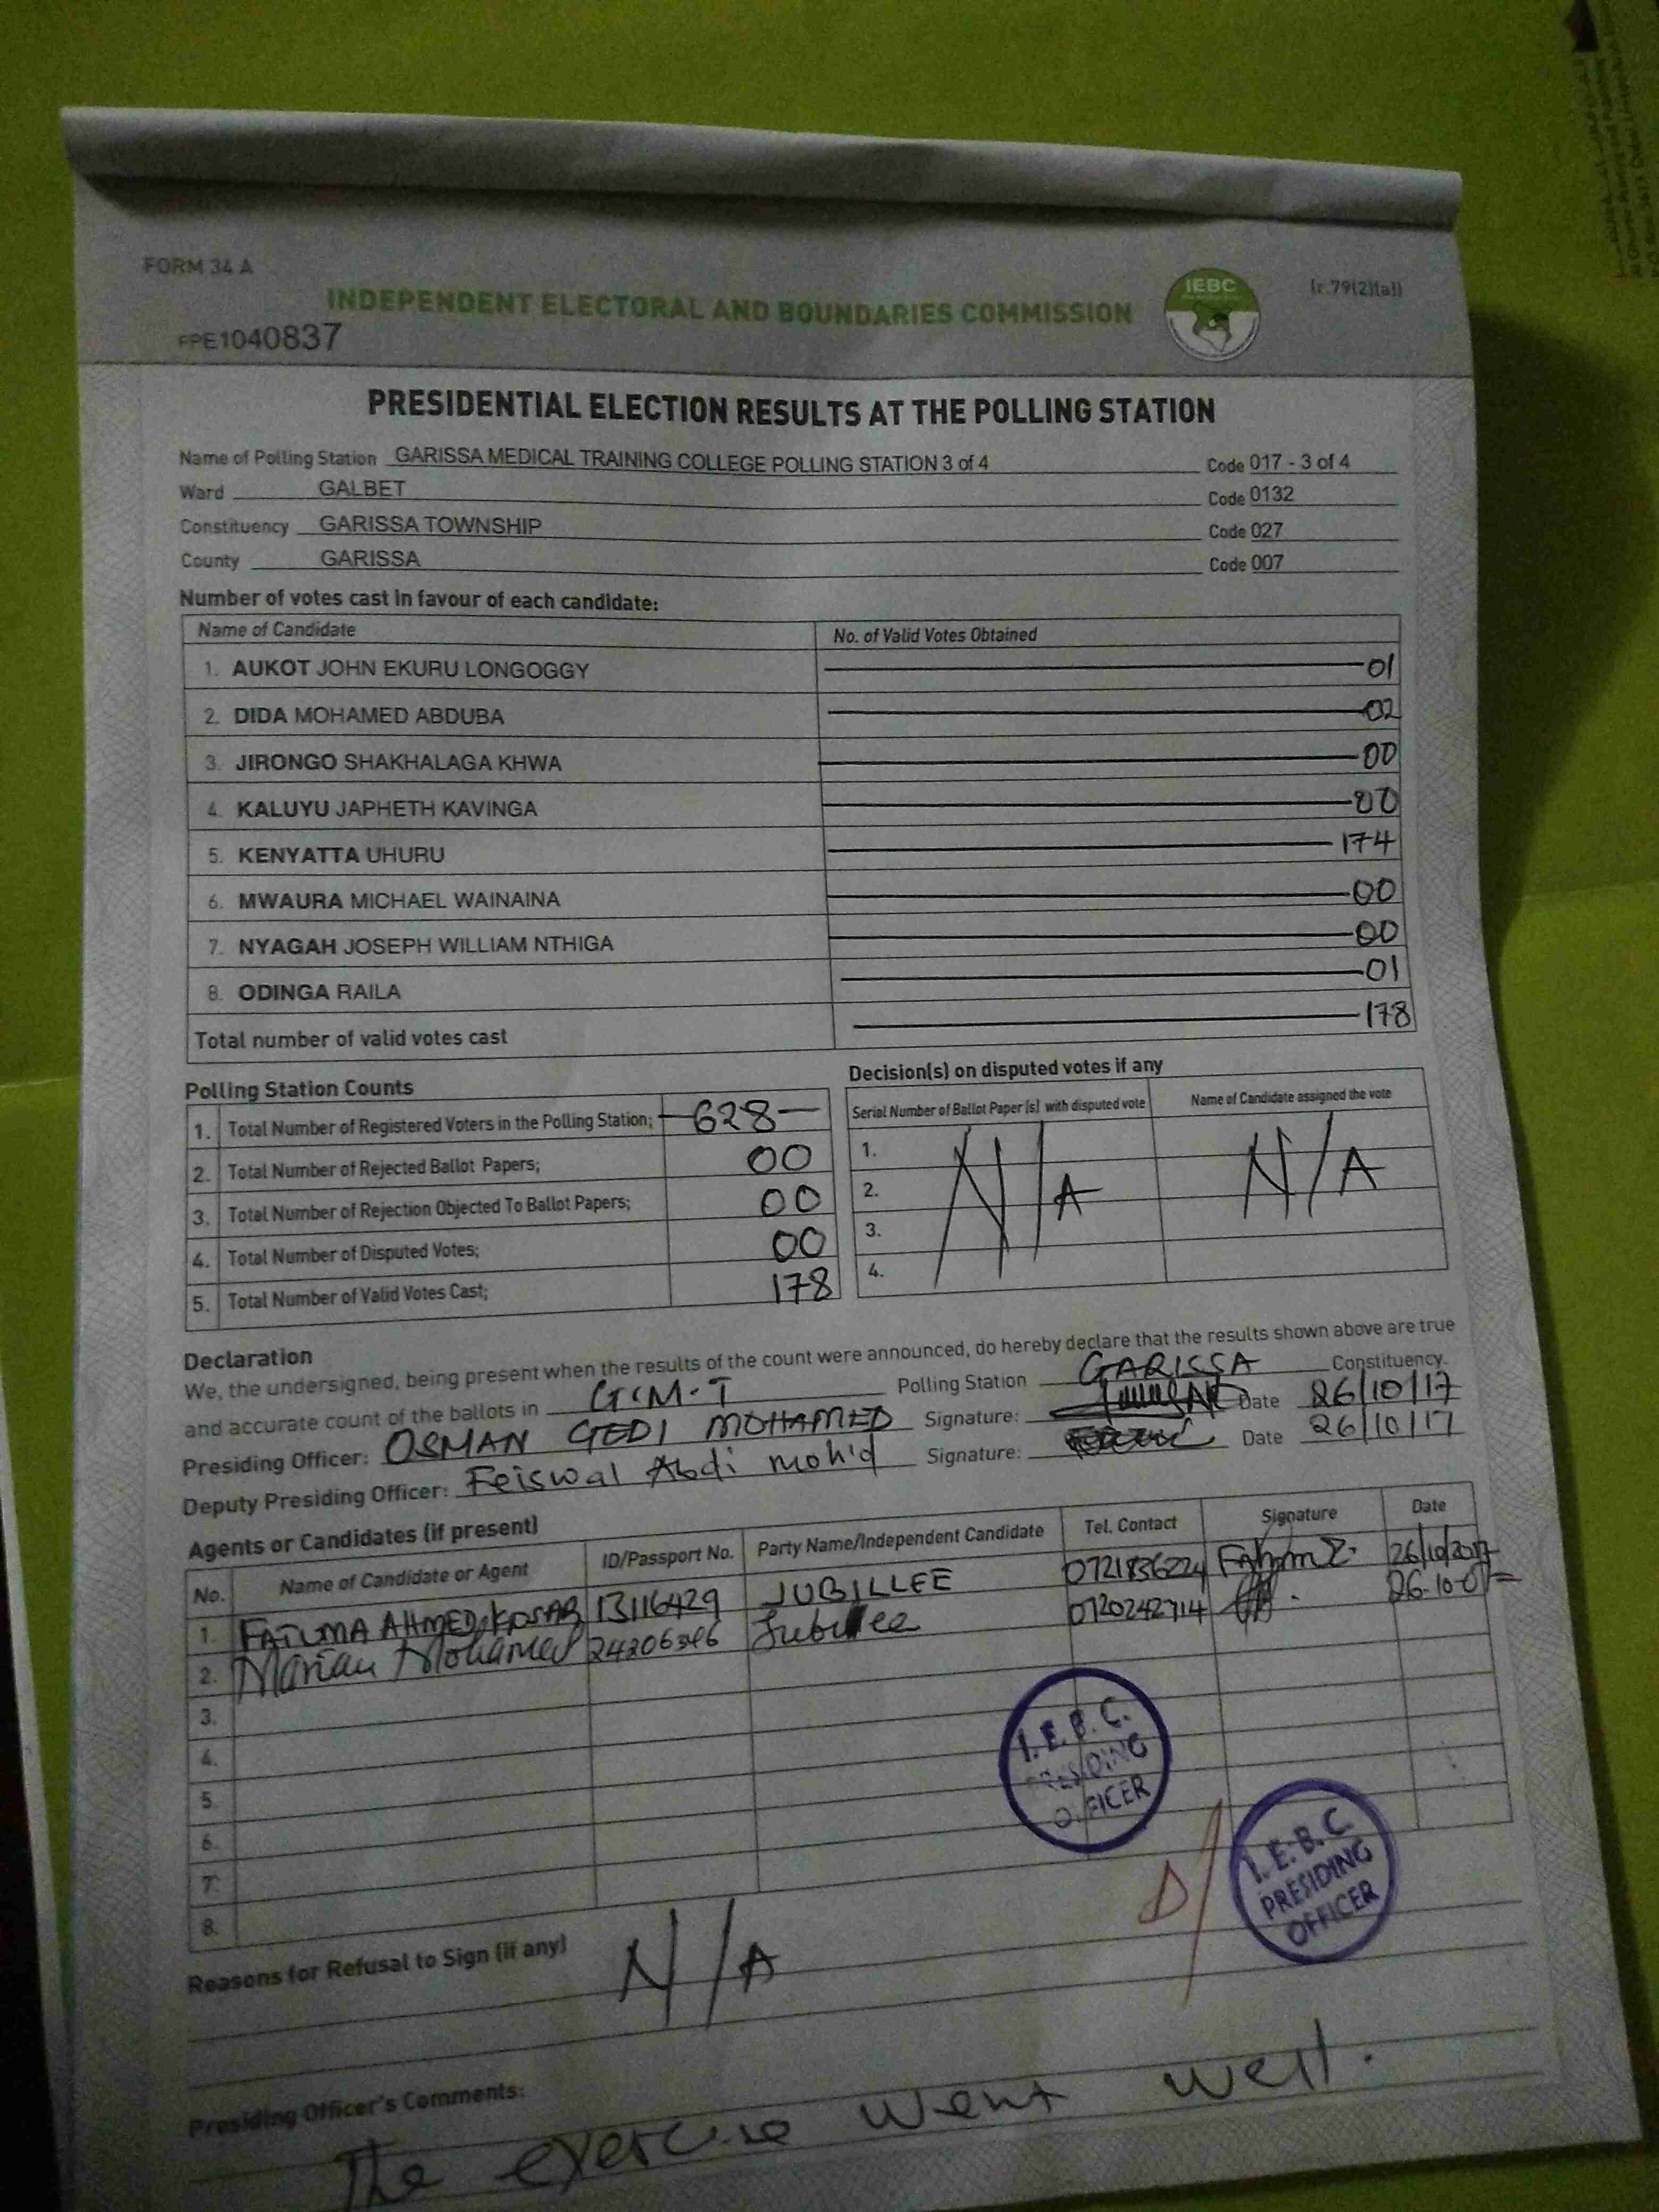 FORM 34 A
INDEPENDENT ELECTORAL AND BOUNDARIES COMMISSION
IEBC
[r.79(2)(a)]
PPE1040837
PRESIDENTIAL ELECTION RESULTS AT THE POLLING STATION
Name of Polling Station GARISSA MEDICAL TRAINING COLLEGE POLLING STATION 3 of 4 Code 017 - 3 of 4
Ward GALBET Code 0132
Constituency GARISSA TOWNSHIP Code 027
County GARISSA Code 007
Number of votes cast in favour of each candidate:
Name of Candidate No. of Valid Votes Obtained
1. AUKOT JOHN EKURU LONGOGGY 01
2. DIDA MOHAMED ABDUBA 02
3. JIRONGO SHAKHALAGA KHWA 00
4. KALUYU JAPHETH KAVINGA 00
5. KENYATTA UHURU 174
6. MWAURA MICHAEL WAINAINA 00
7. NYAGAH JOSEPH WILLIAM NTHIGA 00
8. ODINGA RAILA 01
Total number of valid votes cast 178
Polling Station Counts
1. Total Number of Registered Voters in the Polling Station; 628
2. Total Number of Rejected Ballot Papers; 00
3. Total Number of Rejection Objected To Ballot Papers; 00
4. Total Number of Disputed Votes; 00
5. Total Number of Valid Votes Cast; 178
Decision(s) on disputed votes if any
Serial Number of Ballot Paper (s) with disputed vote Name of Candidate assigned the vote
1.
2. N/A N/A
3.
4.
Declaration
We, the undersigned, being present when the results of the count were announced, do hereby declare that the results shown above are true
and accurate count of the ballots in G.M.T Polling Station GARISSA Constituency.
Presiding Officer: OSMAN GEDI MOHAMED Signature: Date 26/10/17
Deputy Presiding Officer: Feiswal Abdi moh'd Signature: Date 26/10/17
Agents or Candidates (if present)
No. Name of Candidate or Agent ID/Passport No. Party Name/Independent Candidate Tel. Contact Signature Date
1. FATUMA AHMED 13116429 JUBILLEE 0721836224 26/10/2017
2. Mariau Mohamed 24206346 Jubilee 0720242714
3.
4.
5.
6.
7.
8.
I.E.B.C.
PRESIDING
OFFICER
I.E.B.C
PRESIDING
OFFICER
Reasons for Refusal to Sign (if any) N/A
Presiding Officer's Comments:
The exercise went well.